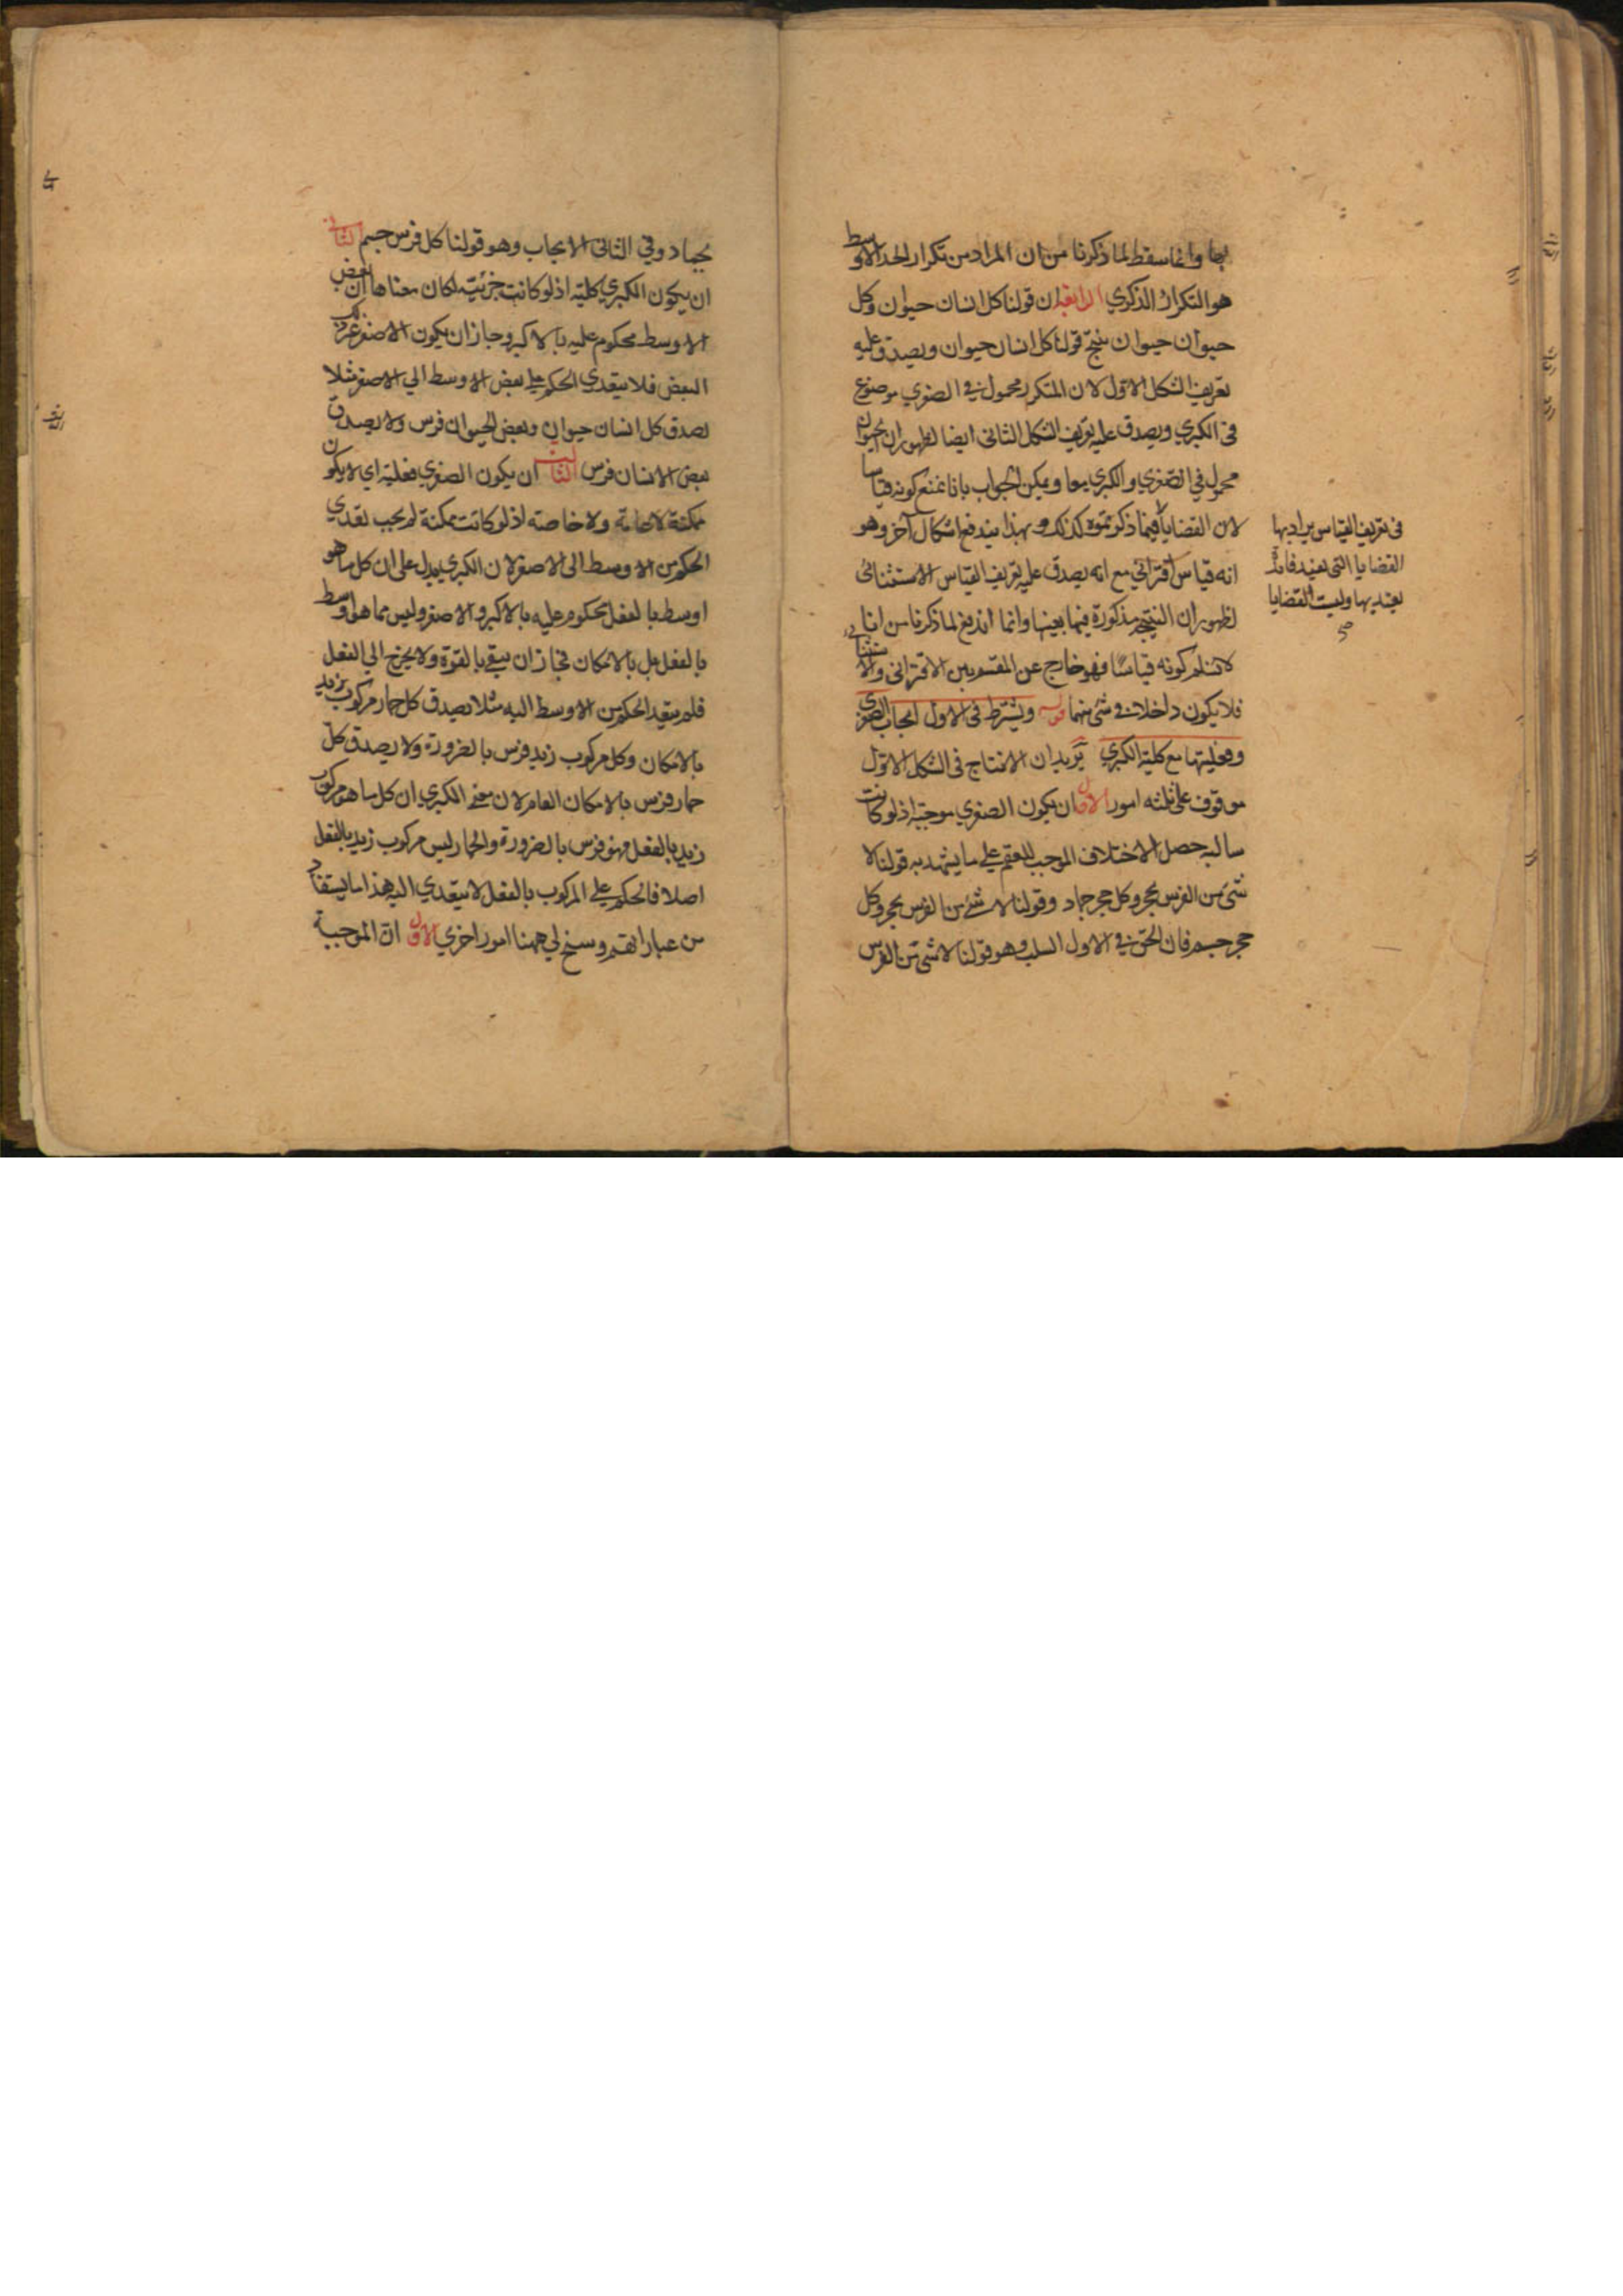 بها وانما سقط لما ذكرنا من ان المراد من تكرار الحد الاوسط
هو التكرار الذكري الرابعة ان قولنا كل انسان حيوان وكل
حيوان حيوان ينتج قولنا كل انسان حيوان ويصدق عليه
تعريف الشكل الاول لان المتكرر محمول في الصغري موضوع
في الكبري ويصدق عليه تعريف الشكل الثاني ايضا لظهور ان الحيوان
محمول في الصغري والكبري معا ويمكن الجواب بانا نمنع كونه قياسا
لان القضايا فيما ذكرتموه كذلك وبهذا يندفع اشكال آخر وهو
انه قياس اقتراني مع انه يصدق عليه تعريف القياس الاستثنائى
لظهور ان النتيجة مذكورة فيها بعينها وانما اندفع لما ذكرنا من انا
لا نسلم كونه قياسا فهو خارج عن المقسم بين الاقترانى والاستثنائى
فلا يكون داخلا في شئ منهما قوله ويشترط في الاول ايجاب الصغري
وفعليتها مع كلية الكبري يريد ان الانتاج في الشكل الاول
موقوف على ثلثه امور الاول ان يكون الصغري موجبة اذ لو كانت
سالبة حصل الاختلاف الموجب للعقم على ما يشهد به قولنا لا
شئ من الفرس بحجر وكل حجر جماد وقولنا لا شئ من الفرس بحجر وكل
حجر جسم فان الحق في الاول السلب وهو قولنا لا شئ من الفرس
في تعريف القياس يراد بها
القضايا التى تفيد فائدة
يعتد بها وليست القضايا
صح
بجماد وفي الثانى الايجاب وهو قولنا كل فرس جسم الثاني
ان يكون الكبري كلية اذ لو كانت جزئية لكان معناها ان بعض
الاوسط محكوم عليه بالاكبر وجاز ان يكون الاصغر غير ذلك
البعض فلا يتعدي الحكم على بعض الاوسط الي الاصغر مثلا
يصدق كل انسان حيوان وبعض الحيوان فرس ولا يصدق
بعض الانسان فرس الثالث ان يكون الصغري فعلية اي لا يكون
ممكنة لا عامة ولا خاصة اذ لو كانت ممكنة لم يجب تعدي
الحكم من الاوسط الى الاصغر لان الكبري يدل على ان كل ما هو
اوسط بالفعل محكوم عليه بالاكبر والاصغر وليس مما هو اوسط
بالفعل بل بالامكان فجاز ان يبقي بالقوة ولا يخرج الي الفعل
فلم يتعد الحكم من الاوسط اليه مثلا يصدق كل حمار مركوب زيد
بالامكان وكل مركوب زيد فرس بالضرورة ولا يصدق كل
حمار فرس بالامكان العام لان معنى الكبري ان كل ما هو مركوب
زيد بالفعل فهو فرس بالضرورة والحمار ليس مركوب زيد بالفعل
اصلا فالحكم على المركوب بالفعل لا يتعدي اليه هذا ما يستفاد
من عباراتهم وسنح لي ههنا امور اخري الاول ان الموجبة